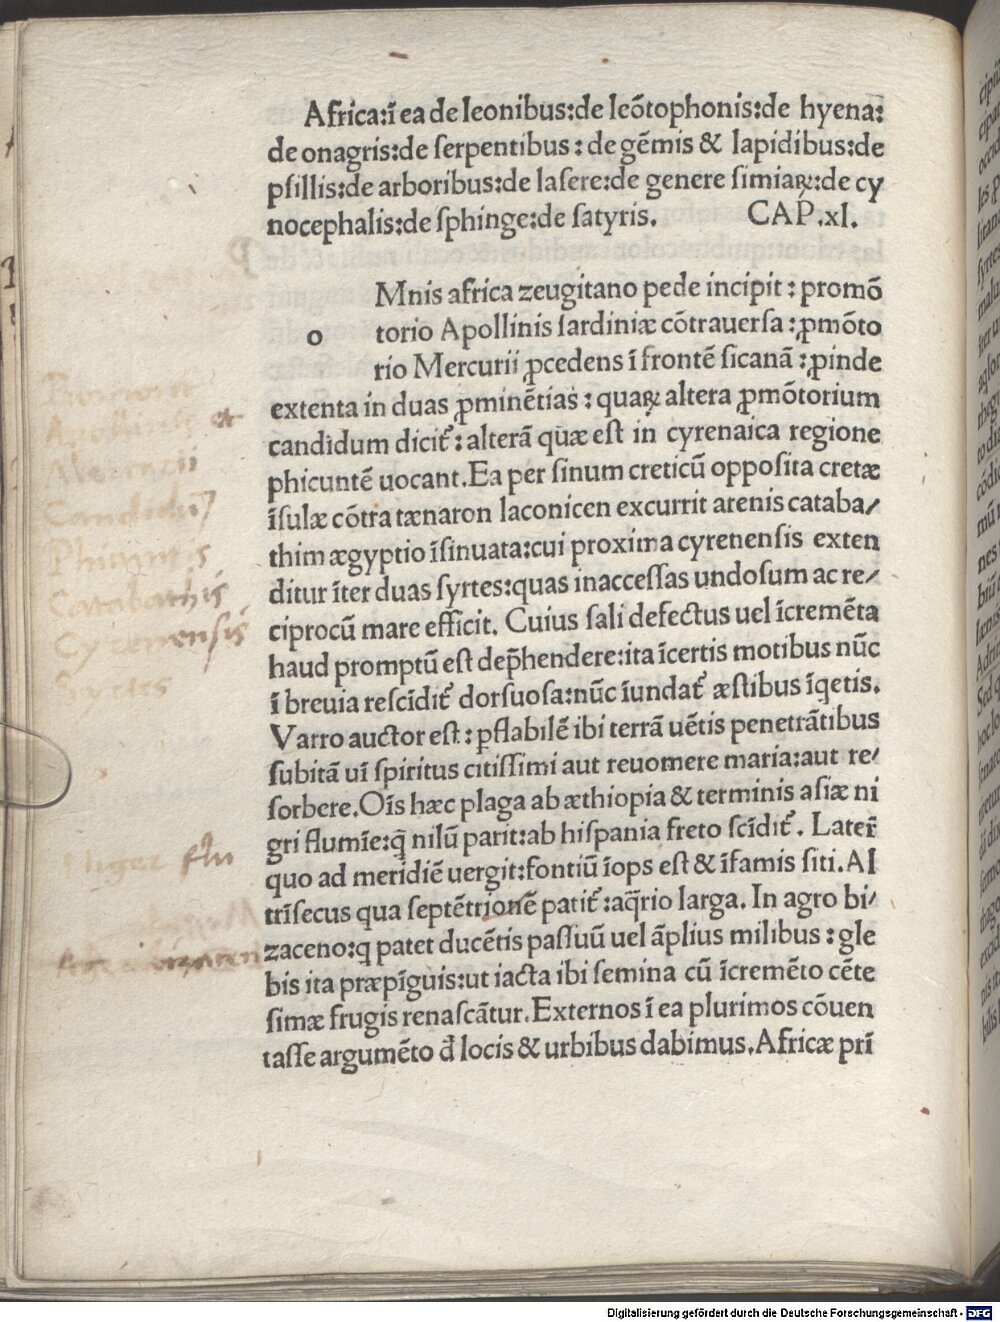 Africa:ī ea de leonibus:de leōtophonis:de hyena:
de onagris:de ſerpentibus : de gēmis & lapidibus:de
pſillis:de arboribus:de laſere:de genere ſimiaꝝ:de cy
nocephalis:de ſphinge:de ſatyris. CAP.xI.
Mnis africa zeugitano pede incipit : promō
o torio Apollinis ſardiniæ cōtrauerſa : ꝓmōto
rio Mercurii ꝓcedens ī frontē ſicanā : ꝓinde
extenta in duas ꝓminētias : quaꝝ altera ꝓmōtorium
candidum dicit᷑ : alterā quæ eſt in cyrenaica regione
phicuntē uocant. Ea per ſinum creticū oppoſita cretæ
īſulæ cōtra tænaron laconicen excurrit arenis cataba/
thim ægyptio īſinuata:cui proxima cyrenenſis exten
ditur īter duas ſyrtes:quas inacceſſas undoſum ac re/
ciprocū mare efficit. Cuius ſali defectus uel īcremēta
haud promptū eſt dep̄hendere:ita īcertis motibus nūc
ī breuia reſcīdit᷑ dorſuoſa:nūc īundat᷑ æſtibus īq̇etis.
Varro auctor eſt : ꝑflabilē ibi terrā uētis penetrātibus
ſubitā uī ſpiritus citiſſimi aut reuomere maria:aut re/
ſorbere. Oīs hæc plaga ab æthiopia & terminis aſiæ ni
gri flumīe:q̄ nilū parit:ab hiſpania freto ſcīdit᷑. Later̄
quo ad meridiē uergit:fontiū īops eſt & īfamis ſiti. Al
trīſecus qua ſeptētrionē patit᷑ :aq̄rio larga. In agro bi/
zaceno:q patet ducētis paſſuū uel āplius milibus : gle
bis ita præpīguis:ut iacta ibi ſemina cū īcremēto cēte
ſimæ frugis renaſcātur. Externos ī ea plurimos cōuen
taſſe argumēto đ locis & urbibus dabimus. Africæ prī
Apollinis et
Mercurii
Candidū
Phicuntis
Catabathis
Cyrenensis
Syrtes
Niger flu
Digitalisierung gefördert durch die Deutsche Forschungsgemeinschaft - DFG